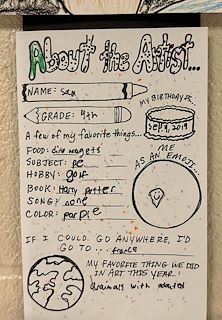 About the Artist...
NAME: Sam
GRADE: 4th
MY BIRTHDAY IS...
A few of my favorite things...
FOOD: dino nuggets
SUBJECT: pe
HOBBY: golf
BOOK: Harry potter
SONG: none
COLOR: purple
ME
AS AN EMOJI...
IF I COULD GO ANYWHERE, I'D
GO TO... france
MY FAVORITE THING WE DID
IN ART THIS YEAR:
with